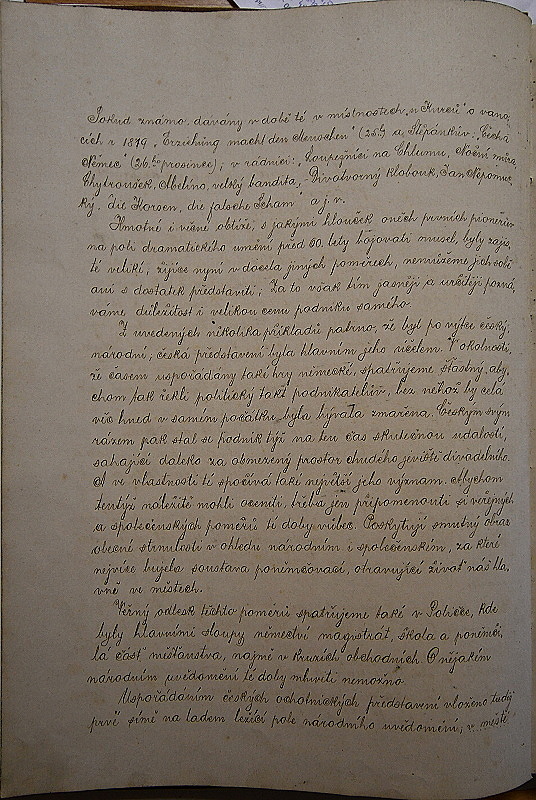 Pokud známo, dávány v době té v místnostech „u Kurců" o váno,
cích r. 1819 „Erziehung macht den Menschen" (25ho) a „Štěpánkův: „Čech a
Němec" (26ho prosince); v radnici: „Loupežníci na Chlumu, Noční můra
Chytroušek, Abelino, velký bandita, Divotvorný klobouk, Jan Nepomuc,
ký, Die Korsen, die falsche Scham" a j. v.
Hmotné i věcné obtíže, s jakými hlouček oněch prvních pionérův
na poli dramatického umění před 60. lety bojovati musel, byly zajis,
té veliké; žijíce nyní v docela jiných poměrech, nemůžeme jich sobě
ani s dostatek představiti; Za to však tím jasněji a určitěji pozná,
váme důležitost i velikou cenu podniku samého.
Z uvedených několika příkladů patrno, že byl po výtce český,
národní; česká představení byla hlavním jeho účelem. V okolnosti,
že časem uspořádány také hry německé, spatřujeme šťastný, aby,
chom tak řekli politický takt podnikatelův, bez něhož by celá
věc hned v samém počátku byla bývala zmařena. Českým svým
rázem pak stal se podnik týž na ten čas skutečnou událostí,
sahající daleko za obmezený prostor chudého jeviště divadelního.
A ve vlastnosti té spočívá také největší jeho význam. Abychom
tentýž náležitě mohli oceniti, třeba jen připomenouti si veřejných
a společenských poměrů té doby vůbec. Poskytují smutný obraz
obecné strnulosti v ohledu národním i společenském, za které
nejvíce bujela soustava poněmčovací, otravující život náš hla,
vně ve městech.
Věrný odlesk těchto poměrů spatřujeme také v Poličce, kde
byly hlavními sloupy němectví magistrát, škola a poněmči,
lá část měšťanstva, najmě v kruzích obchodních. O nějakém
národním uvědomění té doby mluviti nemožno.
Uspořádáním českých ochotnických představení vloženo tudíž
prvé símě na ladem ležící pole národního uvědomění; v městě